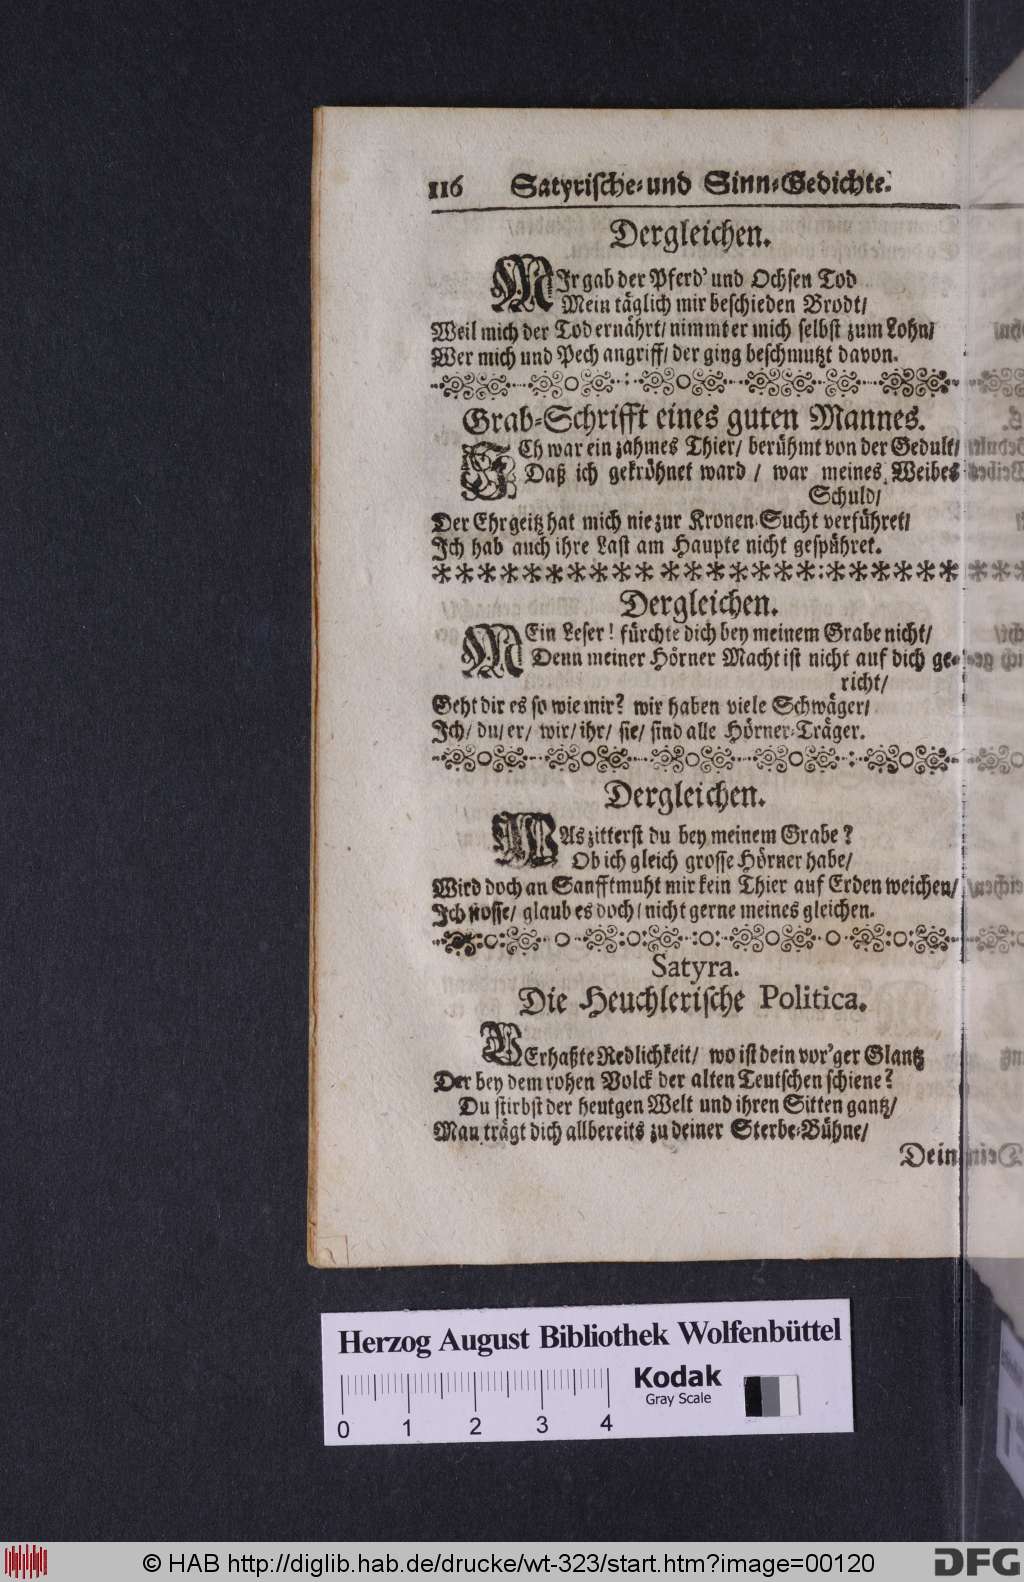 116 Satyrische-und Sinn-Gedichte.
Dergleichen.
MIr gab der Pferd' und Ochsen Tod
Mein täglich mir beschieden Brodt/
Weil mich der Tod ernährt/ nimmt er mich selbst zum Lohn/
Wer mich und Pech angriff/ der ging beschmutzt davon.
Grab-Schrifft eines guten Mannes.
ICh war ein zahmes Thier/ berühmt von der Gedult/
Daß ich gekröhnet ward / war meines Weibes
Schuld/
Der Ehrgeitz hat mich nie zur Kronen-Sucht verführet/
Ich hab auch ihre Last am Haupte nicht gespühret.
Dergleichen.
MEin Leser! fürchte dich bey meinem Grabe nicht/
Denn meiner Hörner Macht ist nicht auf dich ge-
richt/
Geht dir es so wie mir? wir haben viele Schwäger/
Ich/ du/ er/ wir/ ihr/ sie/ sind alle Hörner-Träger.
Dergleichen.
WAs zitterst du bey meinem Grabe?
Ob ich gleich grosse Hörner habe/
Wird doch an Sanfftmuht mir kein Thier auf Erden weichen/
Ich stosse/ glaub es doch/ nicht gerne meines gleichen.
Satyra.
Die Heuchlerische Politica.
VErhaßte Redlichkeit/ wo ist dein vor'ger Glantz
Der bey dem rohen Volck der alten Teutschen schiene?
Du stirbst der heutgen Welt und ihren Sitten gantz/
Man trägt dich allbereits zu deiner Sterbe-Bühne/
Dein
Herzog August Bibliothek Wolfenbüttel
Kodak
Gray Scale
0 1 2 3 4
© HAB http://diglib.hab.de/drucke/wt-323/start.htm?image=00120
DFG